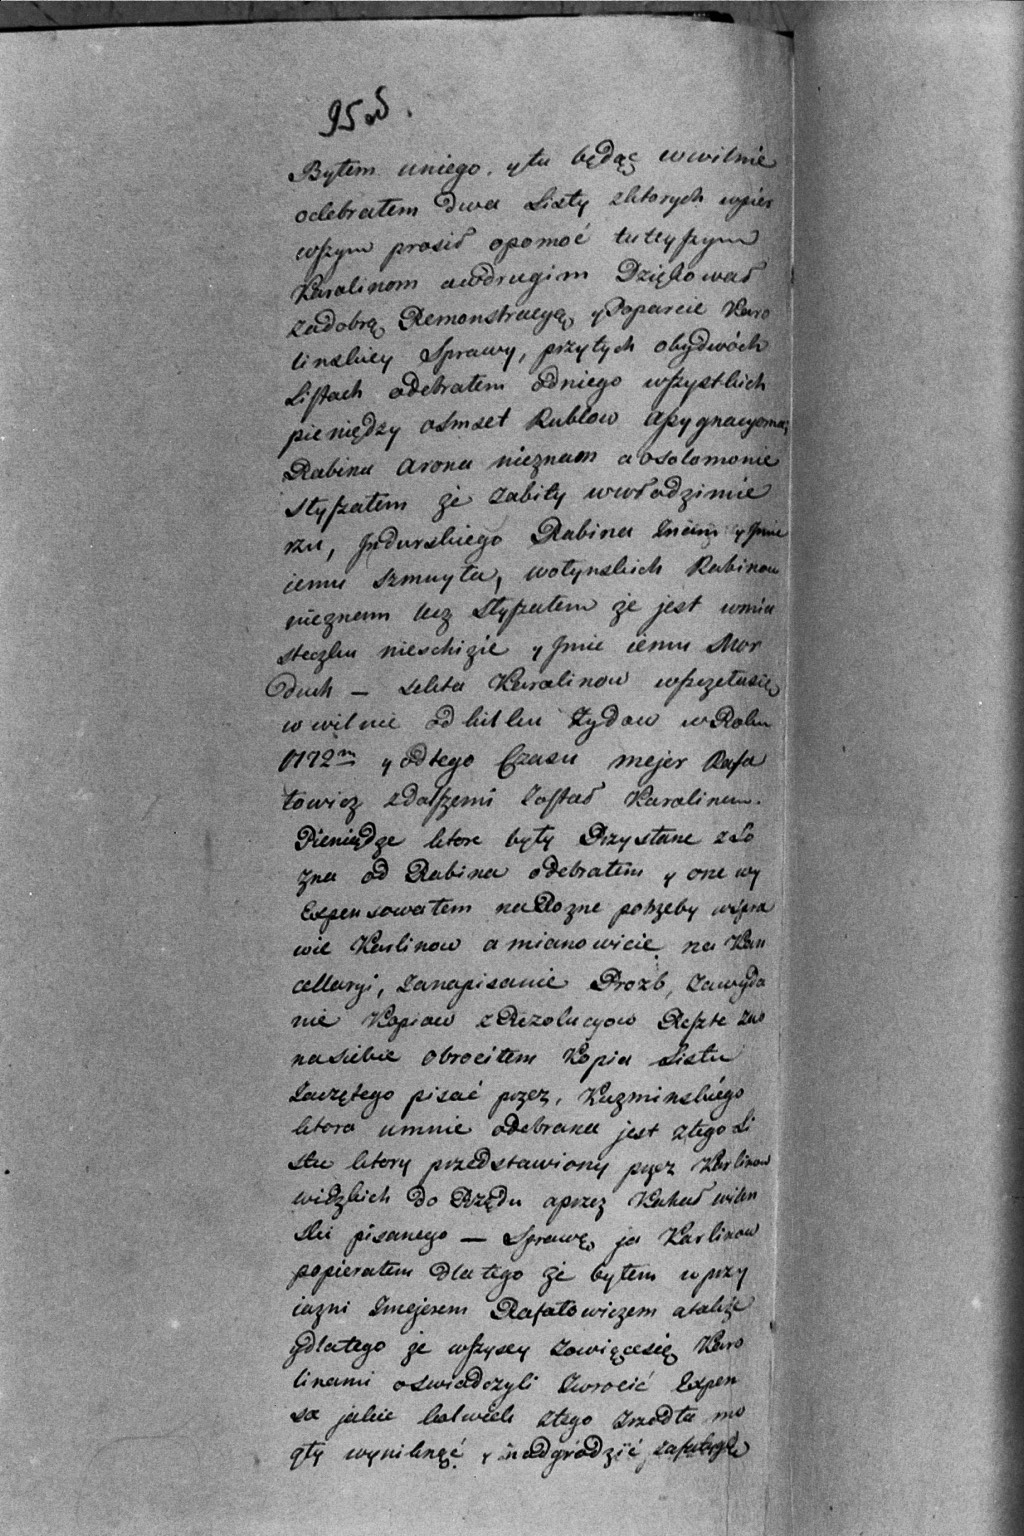 95 
Byłem uniego, ytu będąc wwilnie
odebrałem dwa Listy zktorych wpier
wszym prosił opomoć tuteyszym
Karalinom awdrugim Dziękował
zadobrą Remonstracyą yPoparcie Karo
linskiey Sprawy, przytych obydwóch
Listach odebrałem odniego wszystkich
pieniędzy osmset Rublow Assygnacyoma,
Rabina Arona nieznam aosolomonie
słyszałem że zabity wwłodzimie
rzu, Jndurskiego Rabina znam yJmie
iemu Szmuyła, wołynskich Rabinow
nieznam lecz słyszałem że jest wmia
steczku nieschizie yJmie iemu Mor
duch — sekta Karalinow wszczęłasię
wwilnie od kilku Żydow wRoku
1772m y odtego Czasu mejer Rafa
łowicz zdalszemi został Karalinem.
Pieniądze ktore były Przysłane zŁo
zna od Rabina odebrałem y one wy
Expensowałem naRozne potrzeby wspra
wie Karlinow amianowicie na Kan
cellaryi, zanapisanie Prozb, zawyda
nie Kopiow zRezolucyow Reszte zas
nasiebie obrocilem Kopia Listu
zaczętego pisać przez, Kuzminskiego
ktora umnie odebrana jest ztego Li
stu ktory przedstawiony przez Karlinow
widzkich do Rządu aprzez Kahał wilen
ski pisanego — Sprawę ja Karlinow
popierałem dlatego że byłem wprzy
iazni zmejerem Rafałowiczem atakże
ydlatego że wszyscy zowiącesię Karo
linami oswiadczyli zwrocić Expen
sa jakie kolwiek ztego zrzodła mo
gły wyniknąć y nadgrodzić zafatygę